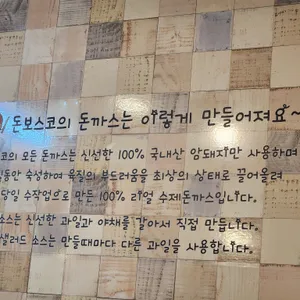 돈보스코의 돈까스는 이렇게 만들어져요~
코의 모든 돈까스는 신선한 100% 국내산 암돼지만 사용하며
동안 숙성하여 육질의 부드러움을 최상의 상태로 끌어올려
당일 수작업으로 만든 100% 리얼 수제돈까스입니다.
소스는 신선한 과일과 야채를 갈아서 직접 만듭니다.
샐러드 소스는 만들때마다 다른 과일을 사용합니다.